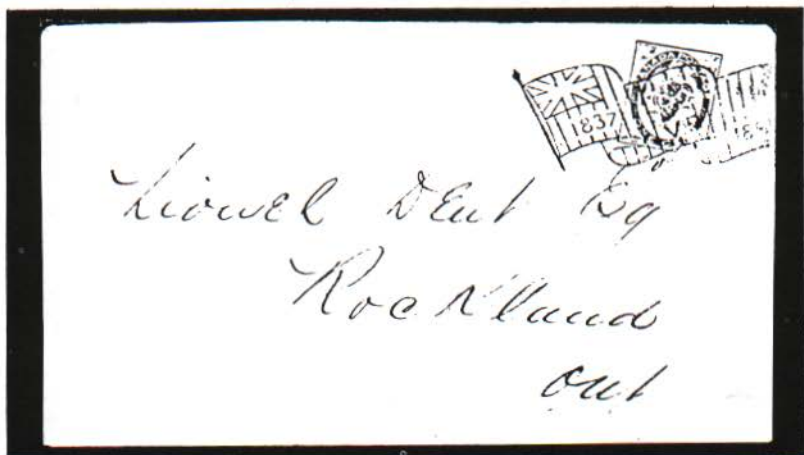 1837
Lionel Dent Esq
Rockland
Ont